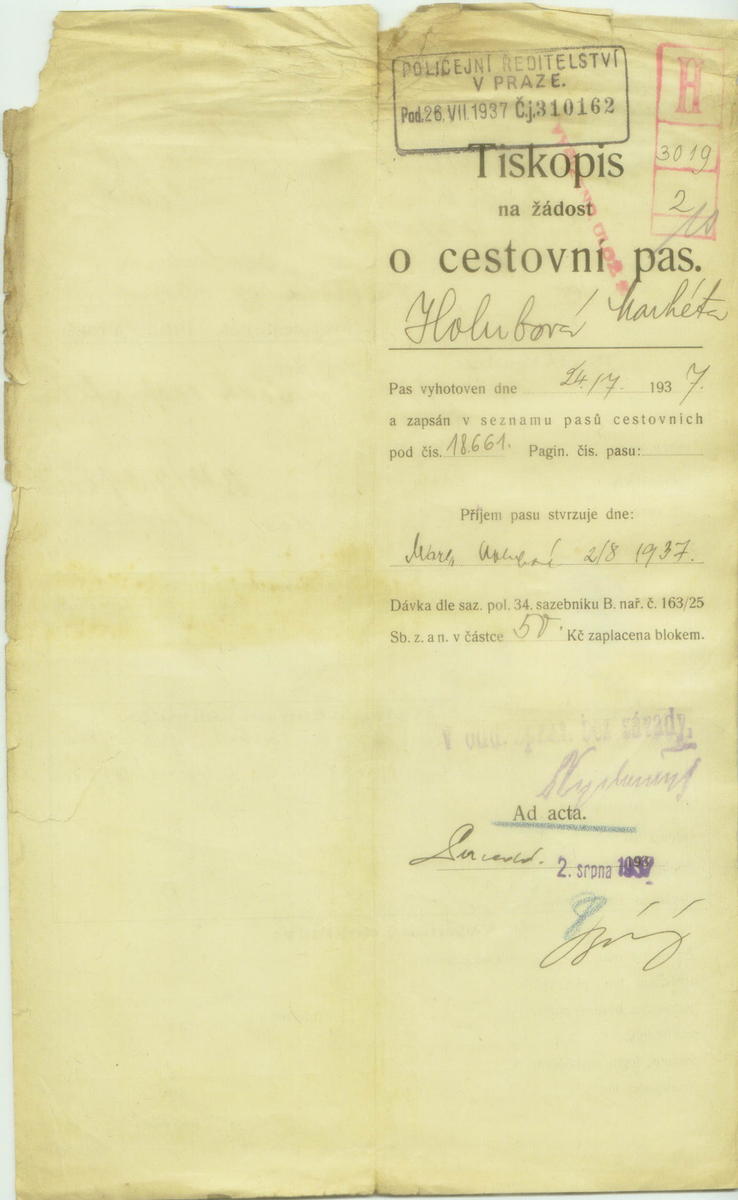 POLICEJNÍ ŘEDITELSTVÍ
V PRAZE.
Pod. 26. VII. 1937 Č.j. 310162
H
3019
2/10
Tiskopis
na žádost
o cestovní pas.
Holubová Markéta
Pas vyhotoven dne 24./7. 1937.
a zapsán v seznamu pasů cestovních
pod čís. 18.661. Pagin. čís. pasu:
Příjem pasu stvrzuje dne:
2/8 1937.
Dávka dle saz. pol. 34. sazebníku B. nař. č. 163/25
Sb. z. a n. v částce 50 Kč zaplacena blokem.
V odd. bez závady.
Ad acta.
2. srpna 1937